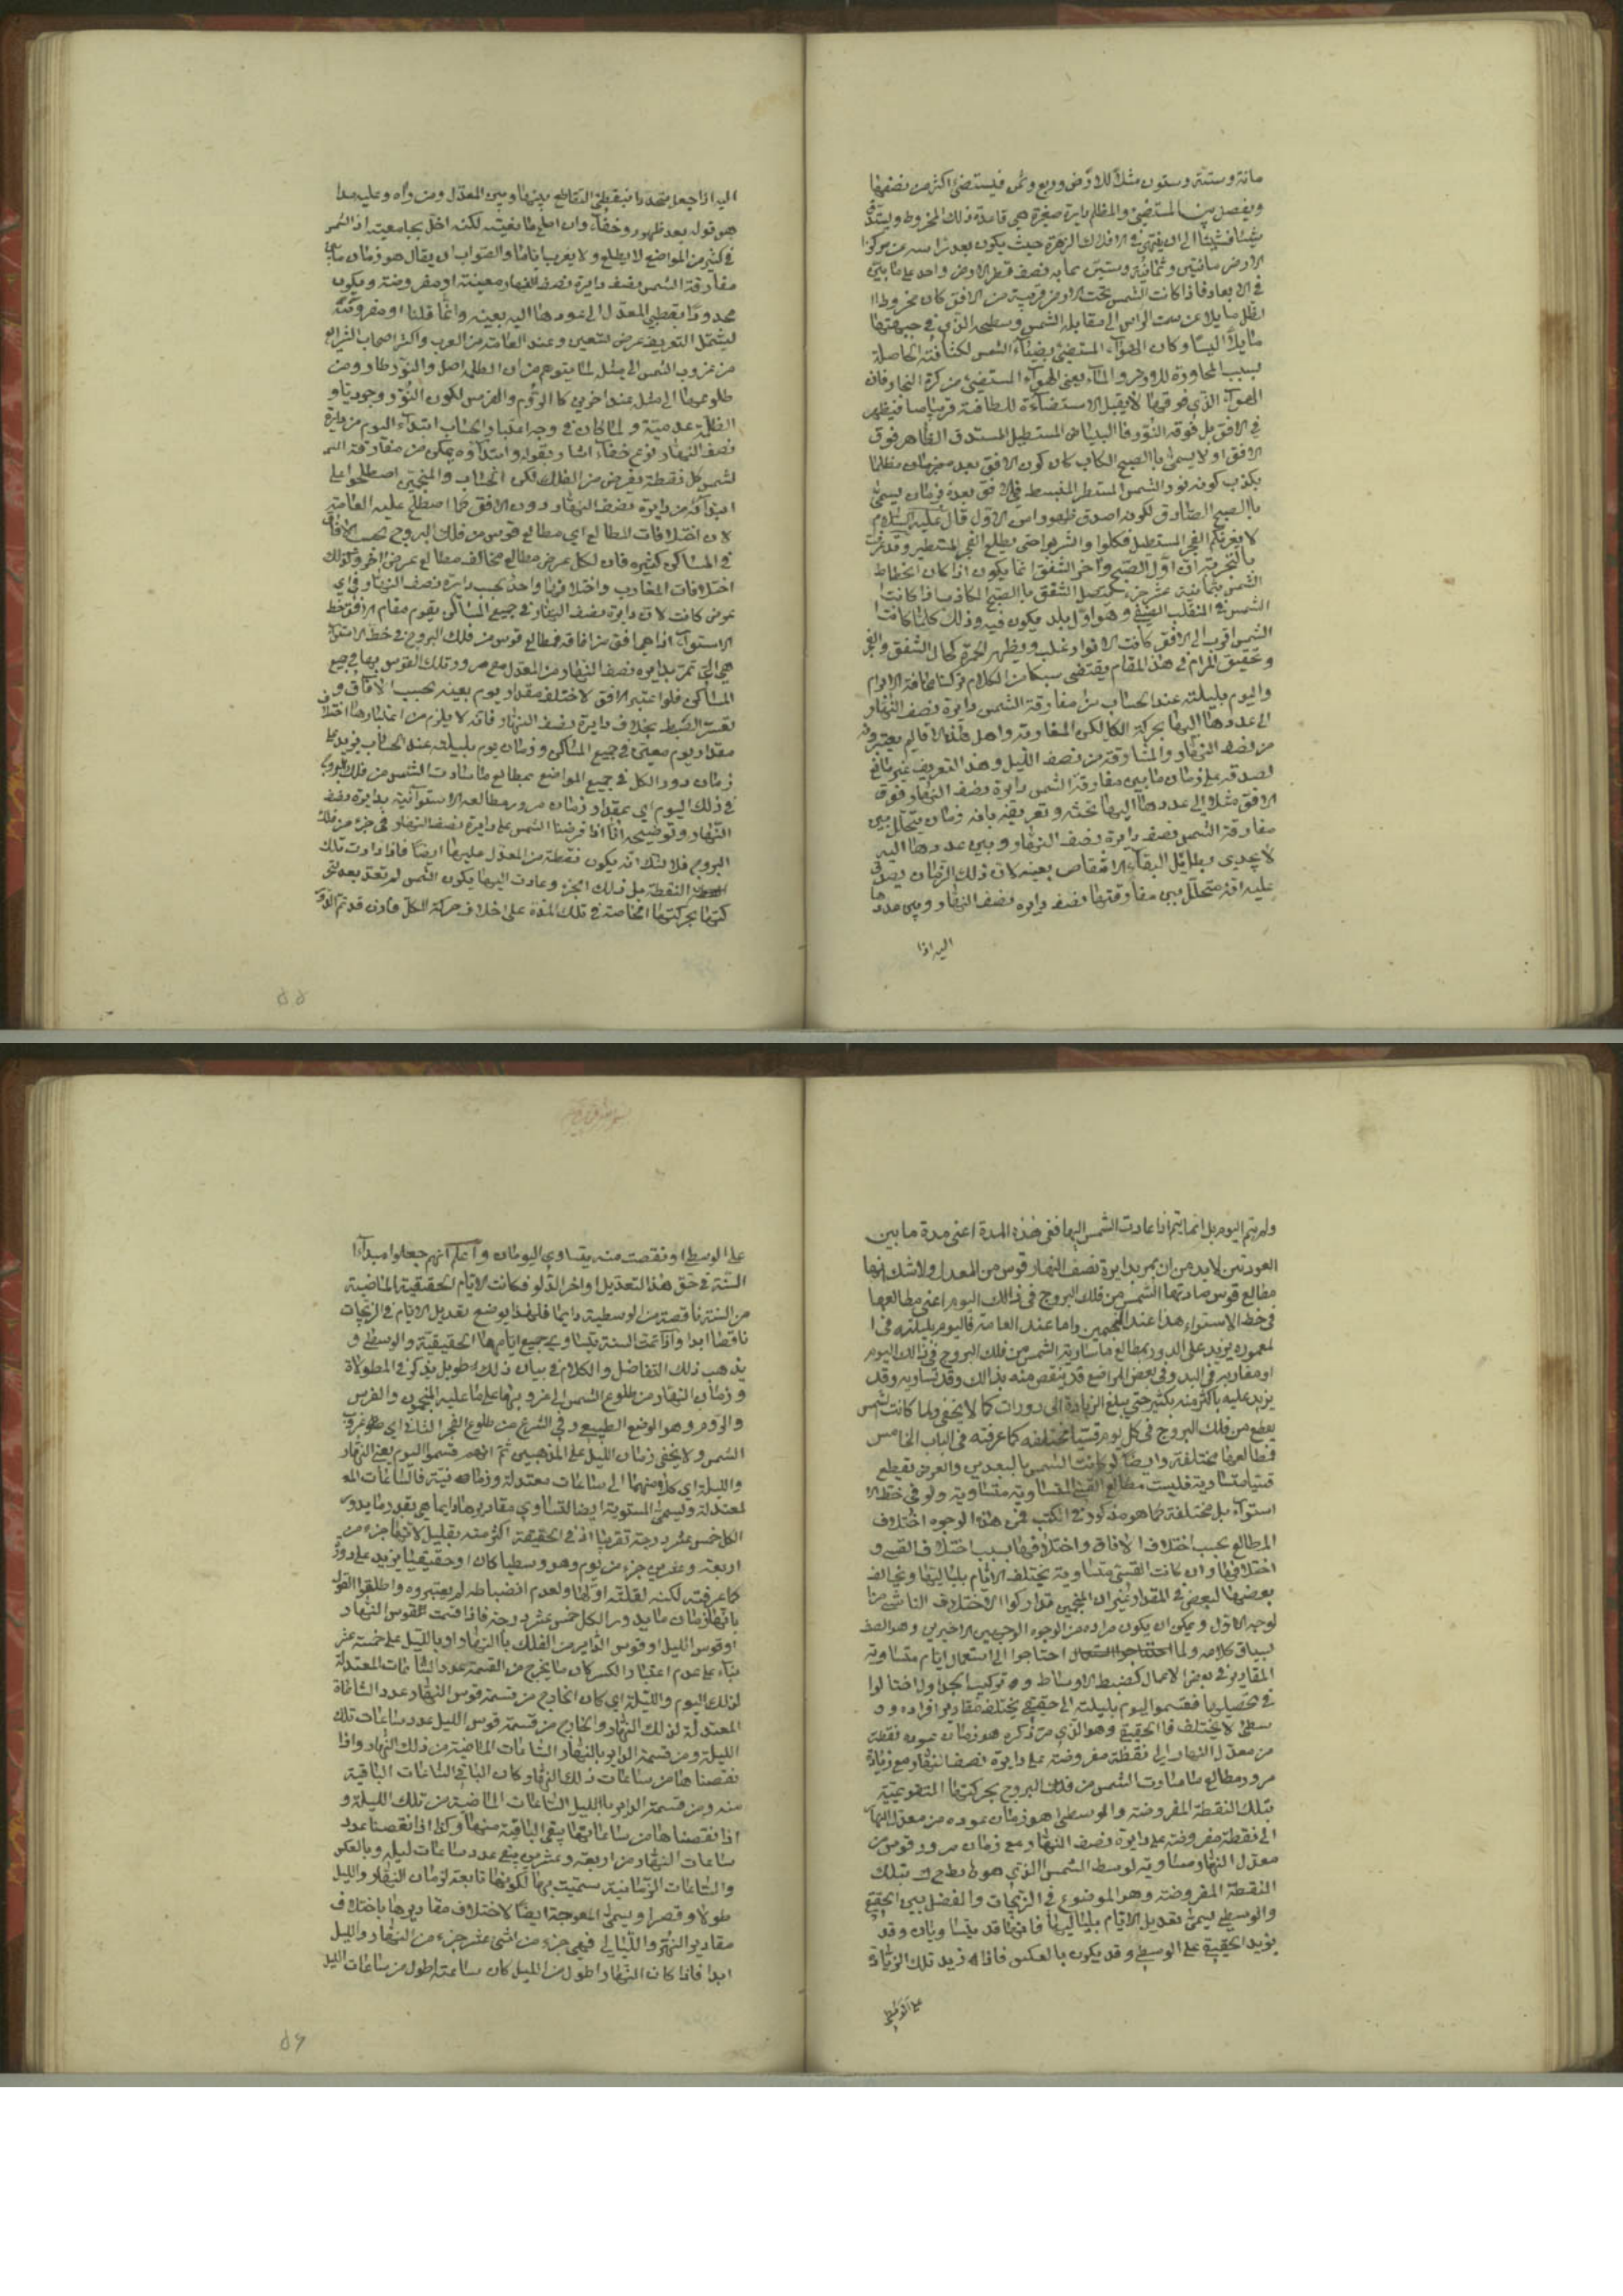 مائة وستة وستون مثلا للارض وربع وثمن فيستضئ اكثر من نصفها
ويفصل بين المستضئ والمظلم دايرة صغيرة هي قاعدة ذلك المخروط ويستدق
شيئا فشيئا الى ان ينتهي في افلاك الزهرة حيث يكون بعد راسه عن مركز
الارض مائتين وثمانية وستين بما به نصف قطر الارض واحد على ما بين
في الابعاد فاذا كانت الشمس تحت الارض قريبة من الافق كان مخروط ا
لظل مايلا عن سمت الراس الى مقابلة الشمس وسطحه الذي في جهتها
مايلا الينا وكان الهوآء المستضئ بضيآء الشمس لكثافته الحاصلة
بسبب المجاورة للارض والمآء يعني الهوآء المستضئ من كرة البخار فان
الهوآء الذي فوقها لا يقبل الاستضآءة للطافته قريبا منا فيظهر
في الافق بل فوقه النور فالبياض المستطيل المستدق الظاهر فوق
الافق اولا يسمى بالصبح الكاذب كان كون الافق بعد مظلما
يكذب كونه نور الشمس المستطير المنبسط في الافق بعده بزمان يسمى
بالصبح الصادق لكونه اصدق ظهورا من الاول قال عليه السلام
لا يغرنكم الفجر المستطيل فكلوا واشربوا حتى يطلع الفجر المستطير وقد عرف
بالتجربة ان اول الصبح وآخر الشفق انما يكون اذا كان انحطاط
الشمس ثمانية عشر جزء يتصل الشفق بالصبح الكاذب اذا كانت
الشمس في المنقلب الصيفي وهو اول بلد يكون فيه ذلك كلما كانت
الشمس اقرب الى الافق كانت الانوار اغلب ويظهر الحمرة كما في الشفق والفجر
وتحقيق المرام في هذا المقام يقتضي بسطا من الكلام تركنا مخافة الابرام
واليوم بليلته عند الحساب من مفارقة الشمس دايرة نصف النهار
الى عودها اليها بحركة الكل لكن المغاربة واهل هذه الاقاليم يعتبرونه
من نصف النهار والمشارقة من نصف الليل وهذا التعريف غير مانع
لصدقه على زمان ما بين مفارقة الشمس دايرة نصف النهار فوق
الافق مثلا الى عودها اليها تحته وتعريفه بانه زمان يتخلل بين
مفارقة الشمس نصف دايرة نصف النهار وبين عودها اليه
لا يجدي بطائل لبقآء الانتقاض بعينه لان ذلك الزمان يصدق
عليه انه متخلل بين مفارقتها نصف دايرة نصف النهار وبين عودها
اليه اذا
اليه اذا جعل محددا بنقطتي التقاطع بينها وبين المعدل ومن زاد وعليه بدا
هو قوله بعد ظهور وخفآء وان اصلح ما بغيته لكنه اخل بجامعيته اذ الشمس
في كثير من المواضع لا يطلع ولا يغرب اياما والصواب ان يقال هو زمان ما بين
مفارقة الشمس نصف دايرة نصف النهار معينة او مفروضة ويكون
محدودا بقطبي المعدل الى عودها اليه بعينه وانما قلنا او مفروضة
ليشتمل التعريف عرض تسعين وعند العامة من العرب واكثر اصحاب الشرايع
من غروب الشمس الى مثله لما يتوهم من ان الظلمة اصل والنور طار ومن
طلوعها الى مثله عند اخرين كالروم والفرس لكون النور وجوديا و
الظلمة عدمية ولما كان في وجه اعتبار الحساب ابتدآء اليوم من دايرة
نصف النهار نوع خفآء اشار بقوله وابتدآؤه يمكن من مفارقة ا
لشمس كل نقطة تفرض من الفلك لكن الحساب والمنجمين اصطلحوا على
ابتدآئه من دايرة نصف النهار دون الافق كما اصطلح عليه العامة
لان اختلافات المطالع اي مطالع قوس من فلك البروج بحسب الافاق
في المساكن كثيرة فان لكل عرض مطالع مخالف مطالع عرض اخر وكذلك
اختلافات المغارب واختلافها واحد بحسب دايرة نصف النهار في اي
عرض كانت لان دايرة نصف النهار في جميع المساكن يقوم مقام افق خط
الاستوآء اذا هما افق من افاقه فمطالع قوس من فلك البروج في خط الاستوآء
هي التي تمر بدايرة نصف النهار من المعدل مع مرور تلك القوس بها في جميع
المساكن فلو اعتبر الافق لاختلف مقدار يوم بعينه بحسب الافاق و
تعسر الضبط بخلاف دايرة نصف النهار فانه لا يلزم من اعتبارها اختلاف
مقدار يوم معين في جميع المساكن وزمان يوم بليلته عند الحساب يزيد على
زمان دور الكل في جميع المواضع بمطالع ما سارت الشمس من فلك البروج
في ذلك اليوم اي بمقدار زمان مرور مطالعه الاستوآئية بدايرة نصف
النهار وتوضيحه انا اذا فرضنا الشمس على دايرة نصف النهار في جزء من فلك
البروج فلا شك انه يكون نقطة من المعدل عليها ايضا فاذا دارت تلك
النقطة بل ذلك الجزء وعادت اليها يكون الشمس لم تعد بعد لتحر
كتها بحركتها الخاصة في تلك المدة على خلاف حركة الكل فاذن قد تم الدور
٥٥
ولم يتم اليوم بل انما يتم اذا عادت الشمس اليها ففي هذه المدة اعني مدة ما بين
العودتين لا بد من ان يمر بدايرة نصف النهار قوس من المعدل ولا شك انها
مطالع قوس سارتها الشمس من فلك البروج في ذالك اليوم اعني مطالعها
في خط الاستواء هذا عند المنجمين واما عند العامة فاليوم بليلته في ا
لمعمورة يزيد على الدور بمطالع ما سارته الشمس من فلك البروج في ذالك اليوم
او مغاربه في البد وفي بعض المواضع قد ينقص منه بذالك وقد تساويه وقد
يزيد عليه باكثر منه بكثير حتى يبلغ الزيادة الى دورات كما لا يخفى ولما كانت الشمس
يقطع من فلك البروج في كل يوم قسيا مختلفة كما عرفته في الباب الخامس
فمطالعها مختلفة وايضا لو كانت الشمس بالبعدين والعرض تقطع
قسيا متساوية فليست مطالع القسي المتساوية متساوية ولو في خط الا
ستوآء بل مختلفة كما هو مذكور في الكتب فمن هذه الوجوه اختلاف
المطالع بحسب اختلاف الافاق واختلافها بسبب اختلاف القسي و
اختلافها وان كانت القسي متساوية يختلف الايام بلياليها وتخالف
بعضها لبعض في المقدار غير ان المنجمين تداركوا الاختلاف الناشي من ا
لوجه الاول ويمكن ان يكون مراده من الوجوه الوجهين الاخيرين وهو الصف
لسياق كلامه ولما احتاجوا الى استعمال ايام متساوية
المقادير في بعض الاعمال كضبط الاوساط وتركيب الجداول احتالوا
في تحصيلها فقسموا اليوم بليلته الى حقيقي يختلف مقادير افراده و و
سطي لا يختلف فالحقيقي وهو الذي مر ذكره هو زمان عود نقطة
من معدل النهار الى نقطة مفروضة على دايرة نصف النهار مع زمان
مرور مطالع ما سارت الشمس من فلك البروج بحركتها التقويمية
بتلك النقطة المفروضة والوسطي هو زمان عوده من معدل النهار
الى نقطة مفروضة على دايرة نصف النهار مع زمان مرور قوس من
معدل النهار مساوية لوسط الشمس الذي هو بتلك
النقطة المفروضة وهو الموضوع في الزيجات والفضل بين الحقيقي
والوسطي يسمى تعديل الايام بلياليها فانها قد يتساويان وقد
يزيد الحقيقي على الوسطي وقد يكون بالعكس فاذا زيد تلك الزيادة
على الوسطي
على الوسطي او نقصت منه يتساوى اليومان واعلم انهم جعلوا مبدأ
السنة في حق هذا التعديل اواخر الدلو فكانت الايام الحقيقية الماضية
من السنة ناقصة من الوسطية دايما فلهذا يوضع تعديل الايام في الزيجات
ناقصا ابدا واذا تمت السنة يتساوى جميع ايامها الحقيقية والوسطي و
يذهب ذلك التفاضل والكلام في بيان ذلك طويل يذكر في المطولات
وزمان النهار من طلوع الشمس الى غروبها على ما عليه المنجمون والفرس
والروم وهو الوضع الطبيعي وفي الشرع من طلوع الفجر الثاني الى غروب
الشمس ولا يخفى زمان الليل على المذهبين ثم انهم قسموا اليوم يعني النهار
والليلة اي كلا منهما الى ساعات معتدلة وزمانية فالساعات المع
لمعتدلة ويسمى المستوية ايضا لتساوي مقاديرها دايما هي بقدر ما يدور
الكل خمس عشر درجة تقريبا اذ في الحقيقة اكثر منه بقليل لانها جزء من
اربعة وعشرين جزء من يوم وهو وسطيا كان او حقيقيا يزيد على دور
كما عرفته لكنه لقلته اولا ولعدم انضباطه لم يعتبروه واطلقوا القول
بانها زمان ما يدور الكل خمس عشر درجة فاذا قسمت القوس النهار
او قوس الليل او قوس الداير من الفلك بالنهار او بالليل على خمسة عشر
بناء على عدم اعتبار الكسر كان ما يخرج من القسمة عدد الساعات المعتدلة
لذلك اليوم والليلة اي كان الخارج من قسمة قوس النهار عدد الساعاة
المعتدلة لذلك النهار والخارج من قسمة قوس الليل عدد ساعات تلك
الليلة ومن قسمة الداير بالنهار الساعات الماضية من ذلك النهار واذا
نقصناها من ساعات ذلك النهار كان الباقي الساعات الباقية
منه ومن قسمة الداير بالليل الساعات الماضية من تلك الليلة و
اذا نقصناها من ساعاتها يبقى الباقية منها وكذا اذا نقصنا عدد
ساعات النهار من اربعة وعشرين يبقى عدد ساعات ليله وبالعكس
والساعات الزمانية سميت بها لكونها تابعة لزمان النهار والليل
طولا وقصرا ويسمى المعوجة ايضا لاختلاف مقاديرها باختلاف
مقادير النهر والليالي فهي جزء من اثنى عشر جزء من النهار والليل
ابدا فاذا كان النهار اطول من الليل كان ساعته اطول من ساعات الليل
٥٦